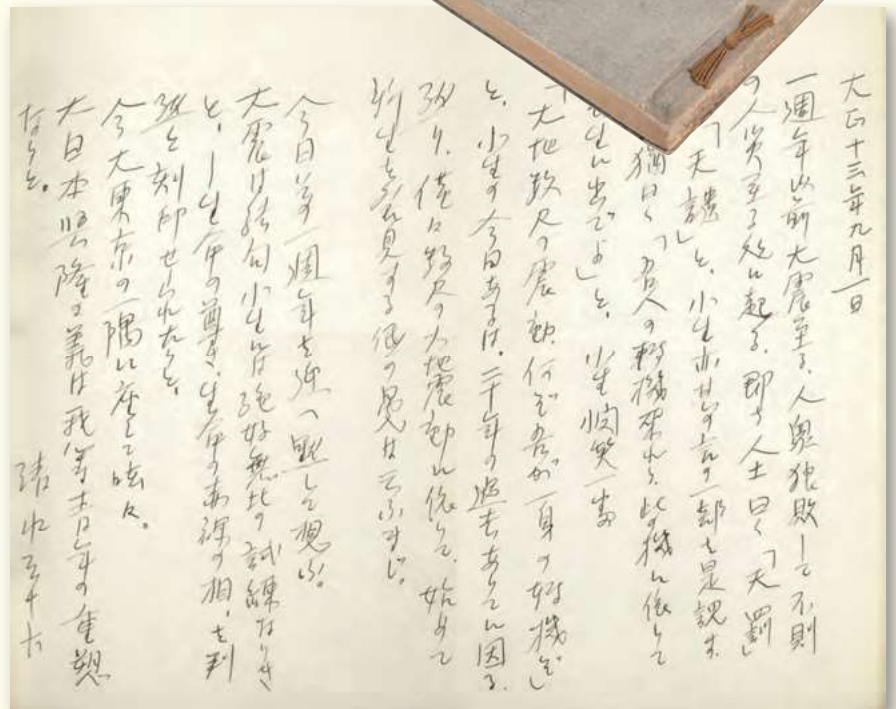 大正十三年九月一日
一週年以前大震至る、人鬼狼敗して不測
の人災至る処に起る、即ち人土曰く「天罰」
「天譴」と、小生亦其の言の一部を是認す、
猶曰く「吾人の転機来れり、此の機に依りて
生に出でよ」と、小生憫笑一番
「大地数尺の震動、何ぞ吾が一身の転機ぞ」
と、小生の今日あるは、二十年の過去ありしに因る、
僅に数尺の大地震動に依りて、始めて
新生を発見する底の愚は云ふまじ。
今日其の一週年を迎へ黙して想ふ。
大震は結句小生には絶好無比の試練なりき
と、生命の尊き、生命の赤裸の相、を判
然と刻印せられたりと、
今大東京の一隅に座して呟く。
大日本興隆の義は我等青年の重
なりと。